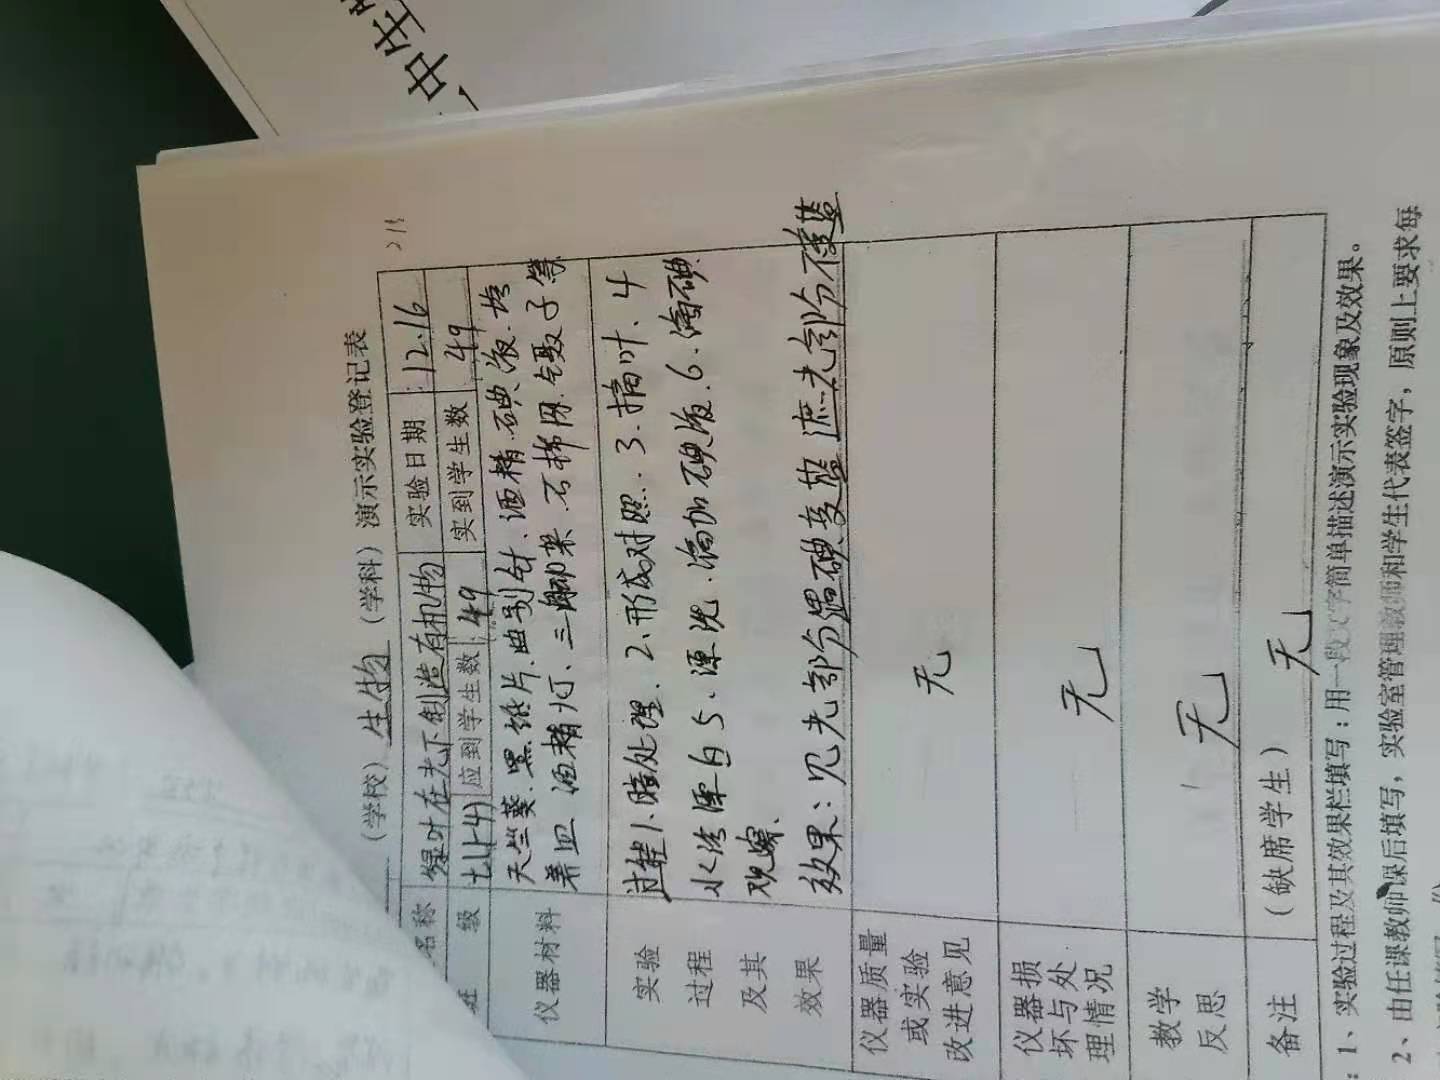 中生
（学校）生物（学科）演示实验登记表
名称 绿叶在光下制造有机物 实验日期 12.16
班 级 七(4) 应到学生数 49 实到学生数 49
仪器材料 天竺葵.黑纸片.曲别针、酒精.碘液.培
养皿、酒精灯、三脚架、石棉网、镊子等
实验 过程1.暗处理、2.形成对照、3.摘叶、4
过程 水浴脱色5、漂洗、滴加碘液.6.滴碘
及其 观察、
效果 效果：见光部分遇碘变蓝 遮光部分不变蓝
仪器质量
或实验 无
改进意见
仪器损
坏与处 无
理情况
教学
反思 无
备注 （缺席学生） 无
：1、实验过程及其效果栏填写：用一段文字简单描述演示实验现象及效果。
2、由任课教师课后填写，实验室管理教师和学生代表签字，原则上要求每